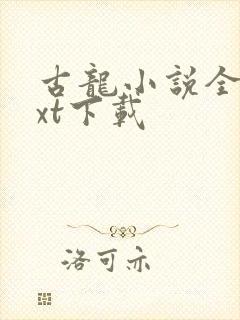 古龍小說全
xt下載
洛可亦